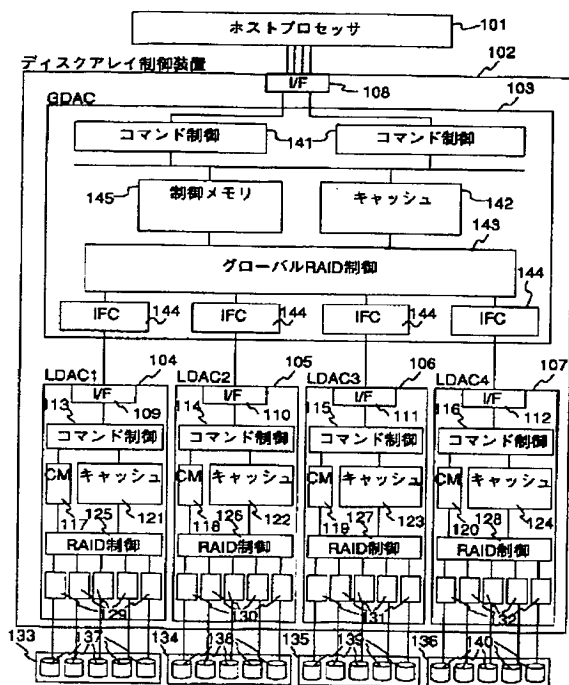 ホストプロセッサ
101
ディスクアレイ制御装置
102
I/F
108
GDAC
103
コマンド制御
141
コマンド制御
145
制御メモリ
キャッシュ
142
143
グローバルRAID制御
IFC
144
IFC
144
IFC
144
IFC
144
LDAC1
104
I/F
109
113
コマンド制御
CM
キャッシュ
117
125
121
RAID制御
129
LDAC2
105
I/F
110
114
コマンド制御
CM
キャッシュ
118
126
122
RAID制御
130
LDAC3
106
I/F
111
115
コマンド制御
CM
キャッシュ
119
127
123
RAID制御
131
LDAC4
107
I/F
112
116
コマンド制御
CM
キャッシュ
120
128
124
RAID制御
132
133
137
134
138
135
139
136
140